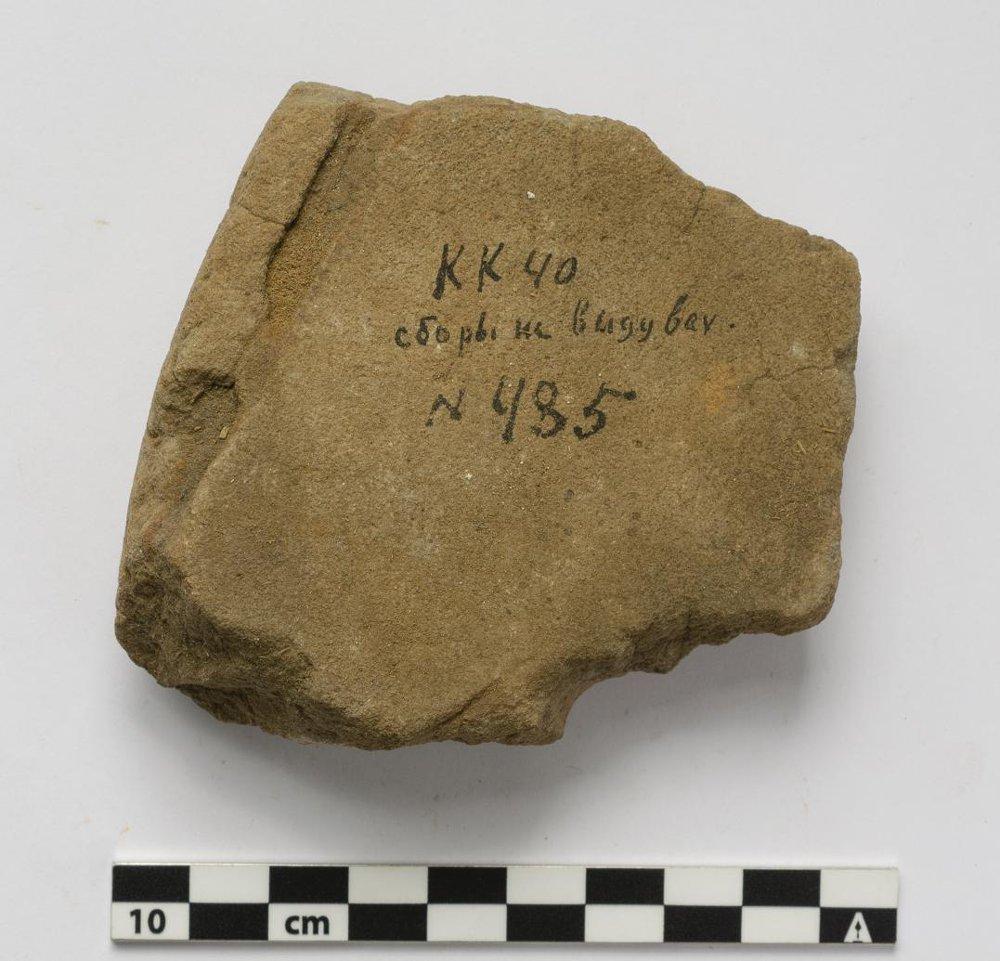 КК 40
сборы на выдувах.
N 485
10 cm
A